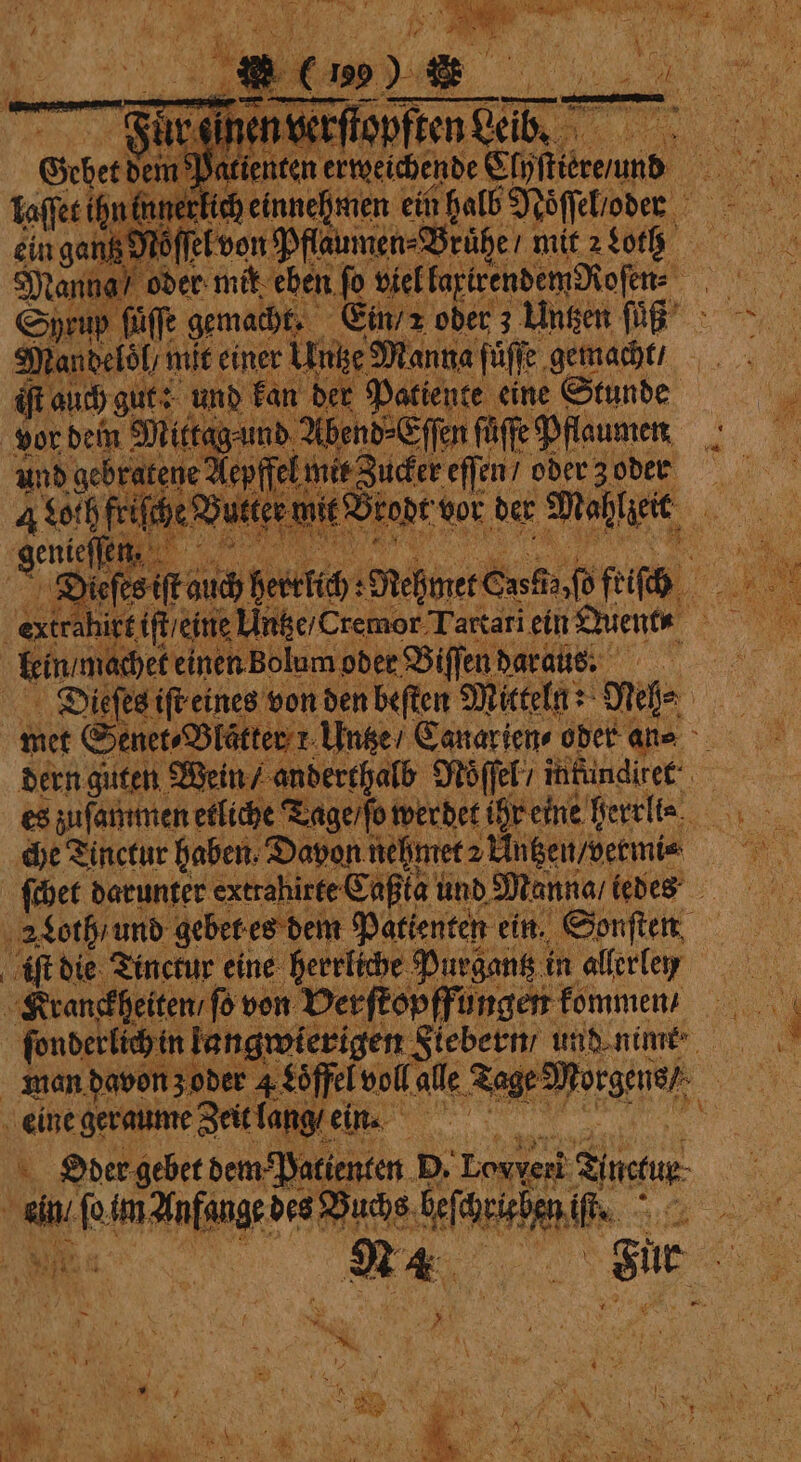 ( 199 )
Für einen verſtopften Leib.
Gebet dem Patienten erweichende Clyſtiere/und
laſſet ihn innerlich einnehmen ein halb Nöſſel/oder
ein gantz Nöſſel von Pflaumen-Brühe / mit 2 Loth
Manna/ oder mit eben ſo viel laxirendem Roſen-
Syrup ſüſſe gemacht. Ein/2 oder 3 Untzen ſüß
Mandelöl/ mit einer Untze Manna ſüſſe gemacht/
iſt auch gut: und kan der Patiente eine Stunde
vor dem Mittag-und Abend-Eſſen ſüſſe Pflaumen
und gebratene Aepffel mit Zucker eſſen/ oder 3 oder
4 Loth friſche Butter mit Brodt vor der Mahlzeit
genieſſen.
Dieſes iſt auch herrlich: Nehmet Casſia, ſo friſch
extrahirt iſt/eine Untze/Cremor Tartari ein Quent-
lein/machet einen Bolum oder Biſſen daraus.
Dieſes iſt eines von den beſten Mitteln: Neh-
met Senet-Blätter 1 Untze/ Canarien- oder an-
dern guten Wein/ anderthalb Nöſſel/ infundiret
es zuſammen etliche Tage/ſo werdet ihr eine herrli-
che Tinctur haben. Davon nehmet 2 Untzen/vermi-
ſchet darunter extrahirte Caßia und Manna/ iedes
2 Loth/ und gebet es dem Patienten ein. Sonſten
iſt die Tinctur eine herrliche Purgantz in allerley
Kranckheiten/ ſo von Verſtopffungen kommen/
ſonderlich in langwierigen Fiebern/ und nimt
man davon 3 oder 4 Löffel voll alle Tage Morgens/
eine geraume Zeit lang/ ein.
Oder gebet dem Patienten D. Lovveri Tinctur
ein/ ſo im Anfange des Buchs beſchrieben iſt.
N 4 Für